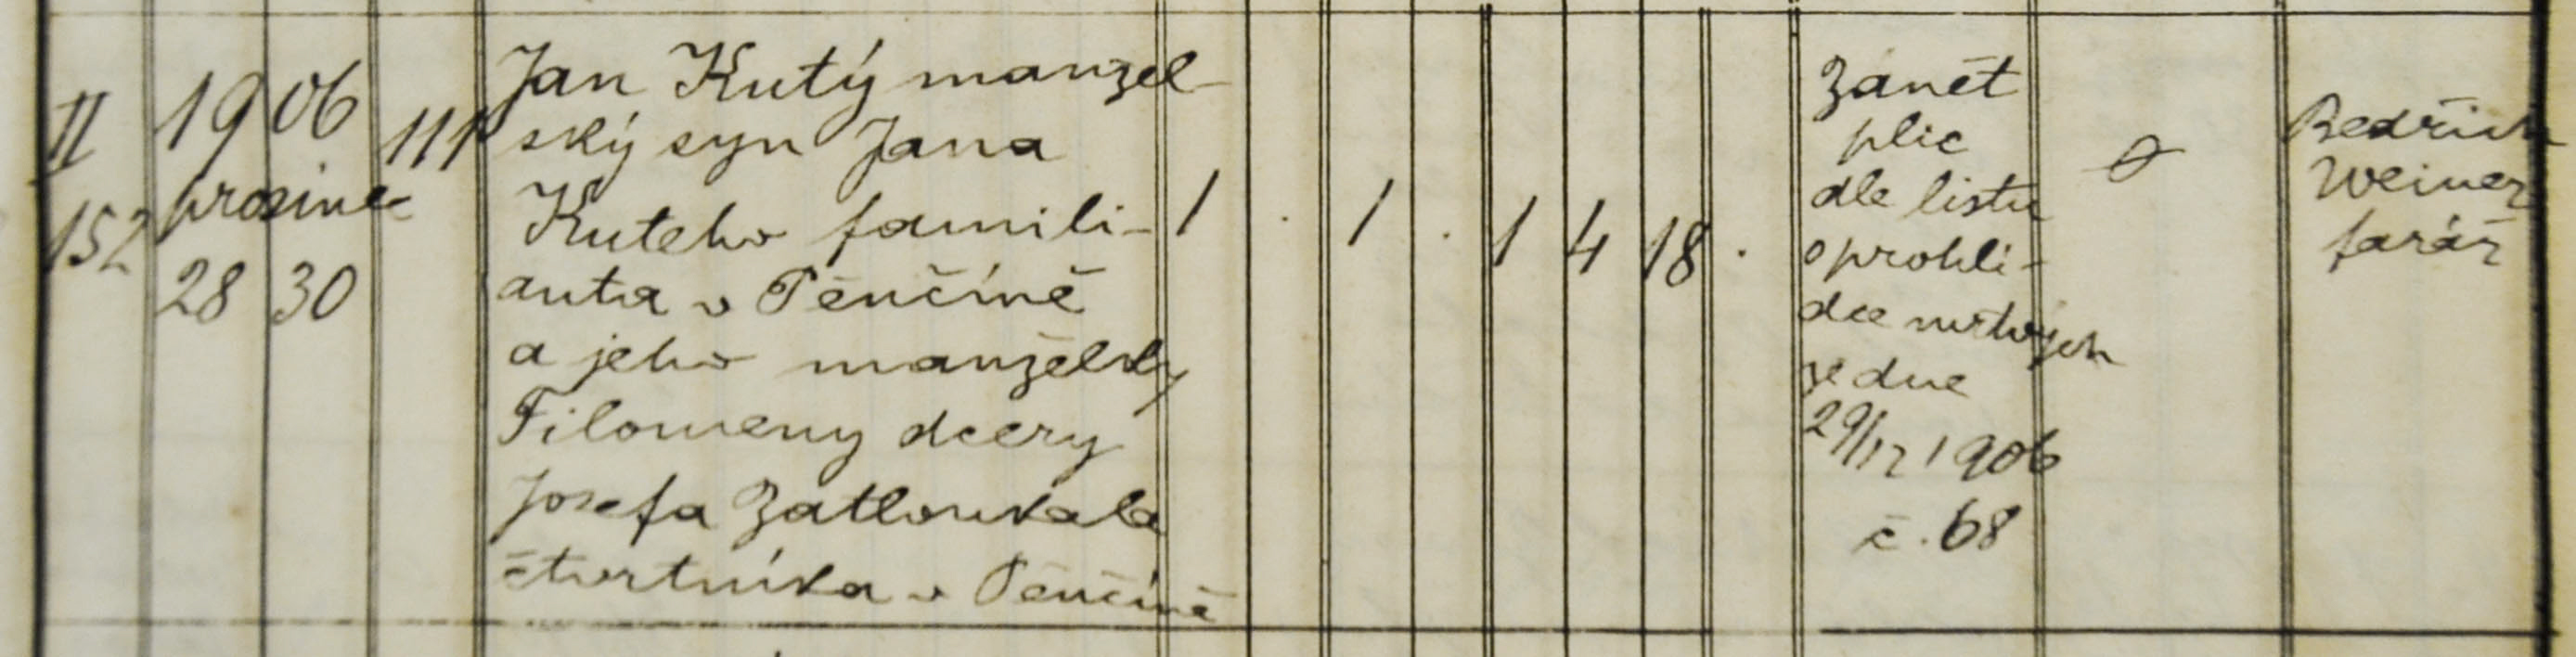 II
152
1906
prosinec
28 30
111
Jan Kutý manžel-
ský syn Jana
Kutého famili-
anta v Pěnčíně
a jeho manželky
Filomeny dcery
Josefa Zatloukala
čtvrtníka v Pěnčíně
1 . 1 . 1 4 18 .
Zánět
plic
dle listu
o prohlí-
dce mrtvých
ze dne
29/12 1906
č. 68
Bedřich
Weiner
farář